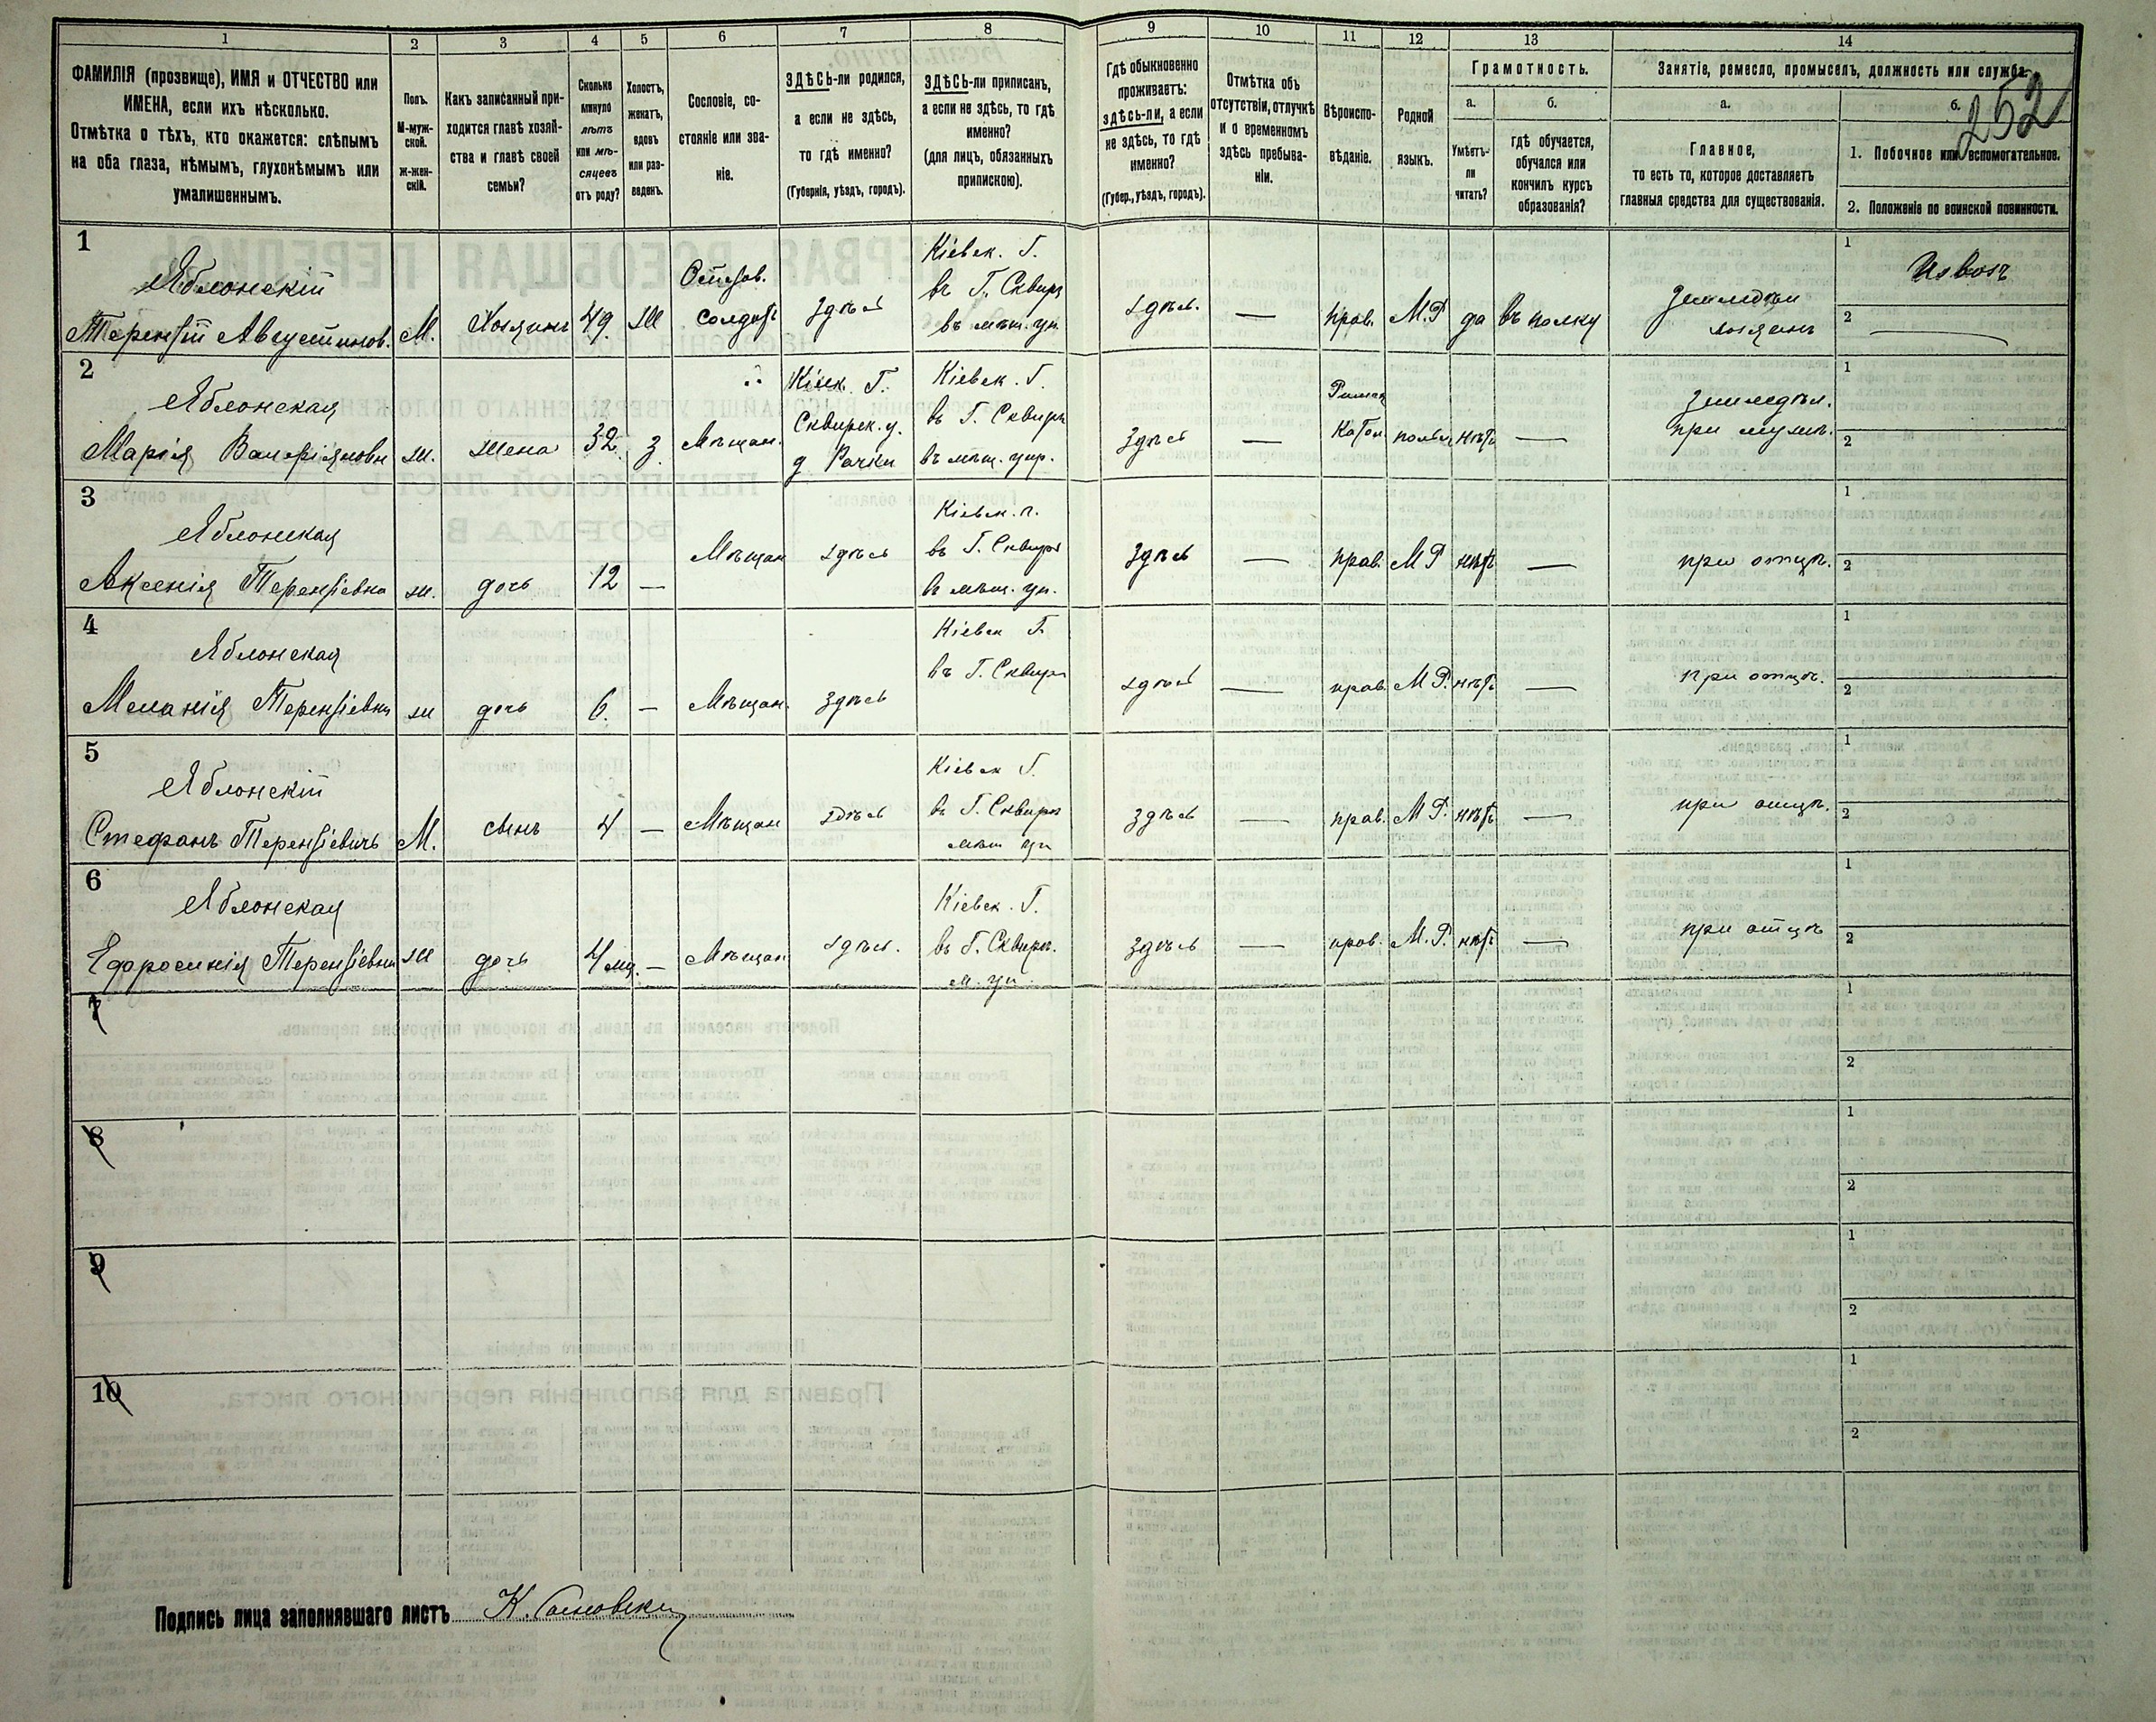 1 2 3 4 5 6 7 8 9 10 11 12 13 14
ФАМИЛІЯ (прозвище), ИМЯ и ОТЧЕСТВО или
ИМЕНА, если ихъ нѣсколько.
Отмѣтка о тѣхъ, кто окажется: слѣпымъ
на оба глаза, нѣмымъ, глухонѣмымъ или
умалишеннымъ.
Полъ.
М-муж-
ской.
Ж-жен-
скій.
Какъ записанный при-
ходится главѣ хозяй-
ства и главѣ своей
семьи?
Сколько
минуло
лѣтъ
или мѣ-
сяцевъ
отъ роду?
Холостъ,
женатъ,
вдовъ
или раз-
веденъ.
Сословіе, со-
стояніе или зва-
ніе.
ЗДѢСЬ-ли родился,
а если не здѣсь,
то гдѣ именно?
(Губернія, уѣздъ, городъ).
ЗДѢСЬ-ли приписанъ,
а если не здѣсь, то гдѣ
именно?
(для лицъ, обязанныхъ
припискою).
Гдѣ обыкновенно
проживаетъ:
здѣсь-ли, а если
не здѣсь, то гдѣ
именно?
(Губер., уѣздъ, городъ).
Отмѣтка объ
отсутствіи, отлучкѣ
и о временномъ
здѣсь пребыва-
ніи.
Вѣроиспо-
вѣданіе.
Родной
языкъ.
Грамотность.
а.
Умѣетъ-
ли
читать?
б.
гдѣ обучается,
обучался или
кончилъ курсъ
образованія?
Занятіе, ремесло, промыселъ, должность или служба.
а.
Главное,
то есть то, которое доставляетъ
главныя средства для существованія.
б.
252
1. Побочное или вспомогательное.
2. Положеніе по воинской повинности.
1
Яблонскій
Терентій Августинов. М. Хозяинъ 49.
солдатъ
здѣсь
Кіевск. Г.
въ Г. Сквирѣ
въ мѣщ. уп.
здѣсь. — прав. М.Р да въ полку
хозяинъ
1 Извозъ
2 —
2
Яблонская
Марія ж. жена 32. з. Мѣщан.
Кіевск. Г.
Сквирск. у.
Кіевск. Г.
въ Г. Сквирѣ
въ мѣщ. упр.
здѣсь —
Римск
Катол польс нѣтъ —
земледѣл.
при мужѣ.
1
2
3
Яблонская
Аксенія Терентіевна ж. дочь 12 — Мѣщан здѣсь
Кіевск. г.
въ Г. Сквирѣ
въ мѣщ. уп.
здѣсь — прав. М Р нѣтъ — при отцѣ.
1
2
4
Яблонская
Меланія Терентіевна ж дочь 6. — Мѣщан. здѣсь
Кіевск Г.
въ Г. Сквирѣ
здѣсь — прав. М Р. нѣтъ — при отцѣ.
1
2
5
Яблонскій
Стефанъ Терентіевичъ М. сынъ 4 — Мѣщан здѣсь
Кіевск Г.
въ Г. Сквирѣ
мѣщ уп
здѣсь — прав. М Р. нѣтъ — при отцѣ.
1
2
6
Яблонская
Терентіевна ж дочь 4 мц. — Мѣщан здѣсь.
Кіевск. Г.
въ Г. Сквирѣ.
м. уп.
здѣсь — прав. М. Р. нѣтъ — при отцѣ
1
2
7
1
2
8
1
2
9
1
2
10
1
2
Подпись лица заполнявшаго листъ К.